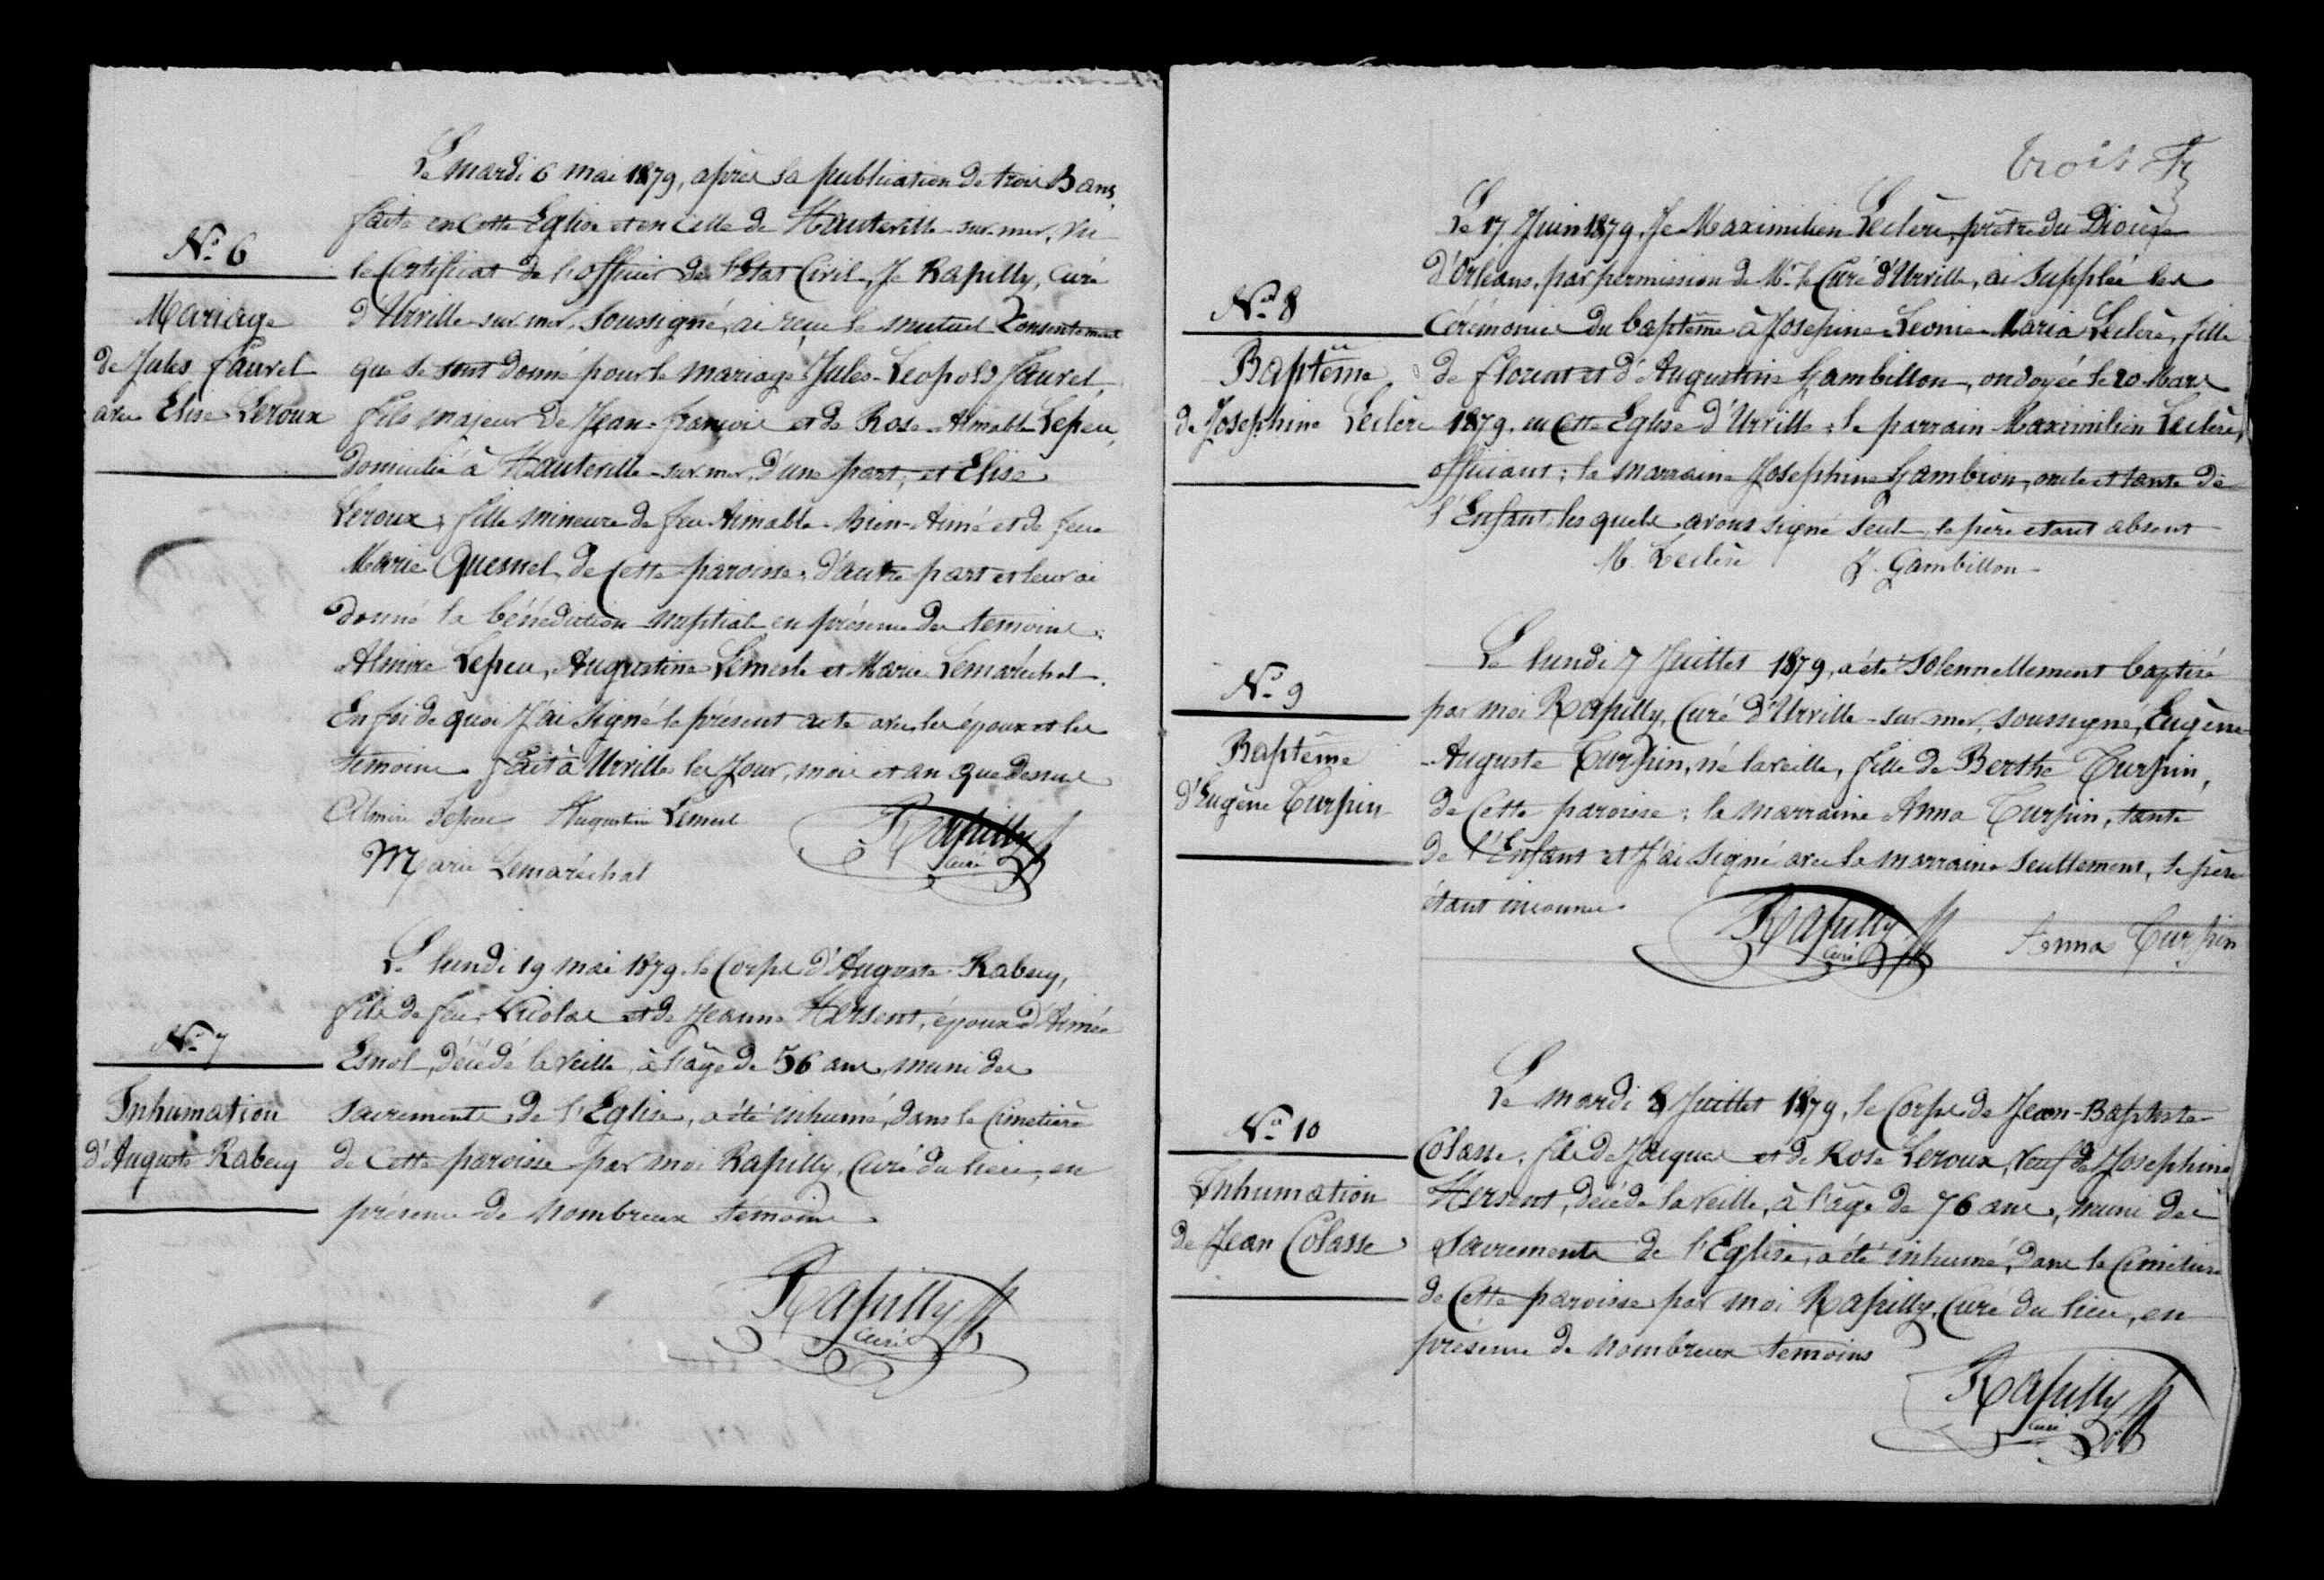 Le mardi 6 mai 1879, après la publication de trois Bans,
faite en cette Eglise et en celle de Hauteville-sur-mer, vu
N.o 6
le Certificat de l'officier de l'Etat Civil, Je Rapilly, curé
Mariage
d'Urville-sur-mer, soussigné, ai reçu le mutuel Consentement
de Jules fauvel
que se sont donné pour le mariage Jules-Leopold fauvel,
avec Elise Leroux
fils majeur de Jean-françois et de Rose-Aimable Lepeu,
Domicilié à Hauteville-sur-mer, d'une part, et Elise
Leroux, fille mineure de feu Aimable-Bien-Aimé et de feue
Marie Quesnel, de cette paroisse, d'autre part et leur ai
donné la bénédiction nuptiale en présence des temoins:
Almire Lepeu, Augustine Lemesle et Marie Lemaréchal.
En foi de quoi J'ai signé le présent acte avec les époux et les
témoins fait à Urville les Jour, mois et an que dessus
Almire Lepeu Augustin Lemesl Rapilly
curé
Marie Lemaréchal
Le lundi 19 mai 1879, le Corps d'Auguste Rabecq,
fils de feu Nicolas et de Jeanne Hersent, époux d'Aimée
N.o 7
Esnol, décédé la veille, à l'âge de 56 ans, muni des
Inhumation
sacrements de l'Eglise, a été inhumé, dans le Cimetière
d'Auguste Rabecq
de Cette paroisse par moi Rapilly, Curé du lieu, en
présence de nombreux témoins
Rapilly
curé
trois
Le 17 Juin 1879, Je Maximilien Leclère, prêtre du Diocèse
d'Orléans, par permission de Mr. le Curé d'Urville, ai supplée les
N.o 8
Cérémonies du baptême à Josephine-Leonie-Maria Leclère, fille
Baptême
de florent et d'Augustine Gambillon, ondoyée le 20 Mars
de Josephine Leclère
1879, en cette Eglise d'Urville; le parrain Maximilien Leclère,
officiant; la marraine Josephine Gambion, oncle et tante de
l'Enfant, lesquels avons signé seuls, le père etant absent
M. Leclère J. Gambillon
Le lundi 7 Juillet 1879, a été Solennellement baptisé
N.o 9
par moi Rapilly, Curé d'Urville-sur-mer, soussigné, Eugène
Baptême
-Auguste Turpin, né la veille, fils de Berthe Turpin,
d'Eugène Turpin
de Cette paroisse; la marraine Anna Turpin, tante
de l'Enfant et J'ai signé avec la marraine seullement, le père
étant inconnu.
Rapilly Anna Turpin
curé
Le mardi 8 Juillet 1879, le Corps de Jean-Baptiste
N.o 10
Colasse, fils de Jacques et de Rose Leroux, veuf de Josephine
Inhumation
Hersent, décédé la veille, à l'âge de 76 ans, muni des
de Jean Colasse
Sacrements de l'Eglise, a été inhumé, dans le Cimetière
de Cette paroisse par moi Rapilly, Curé du lieu, en
présence de nombreux temoins
Rapilly
curé